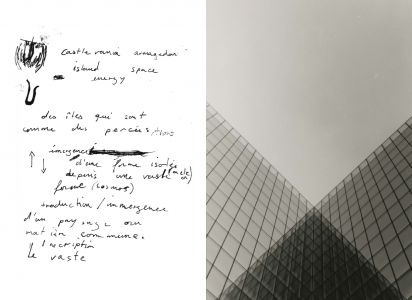 castlevania armagedon
island space
energy
des îles qui sont
comme des percées
d'une forme isolée
depuis une vaste
forme (cosmos)
traduction / immergence
d'un paysage ou
matière commune.
inscription
le vaste